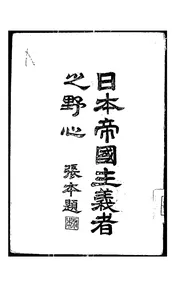 日本帝國主義者
之野心
張本題